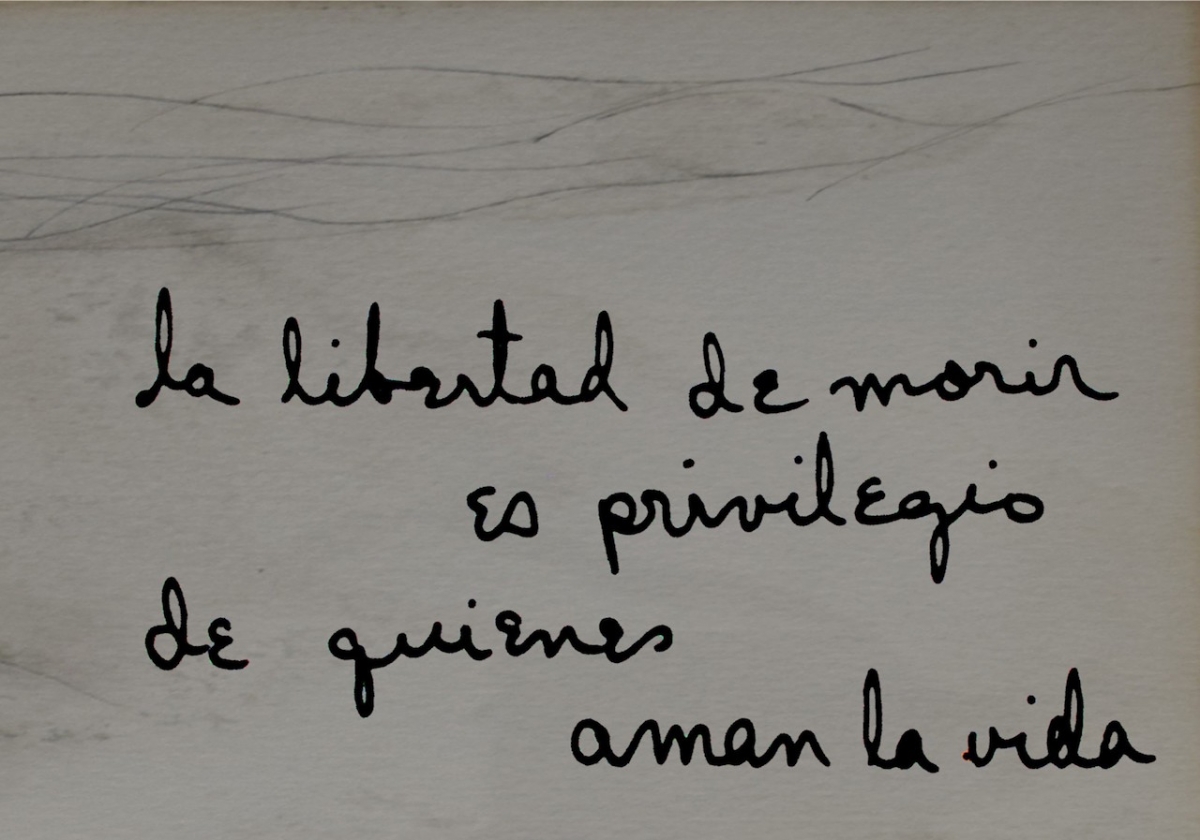 la libertad de morir
es privilegio
de quienes
aman la vida